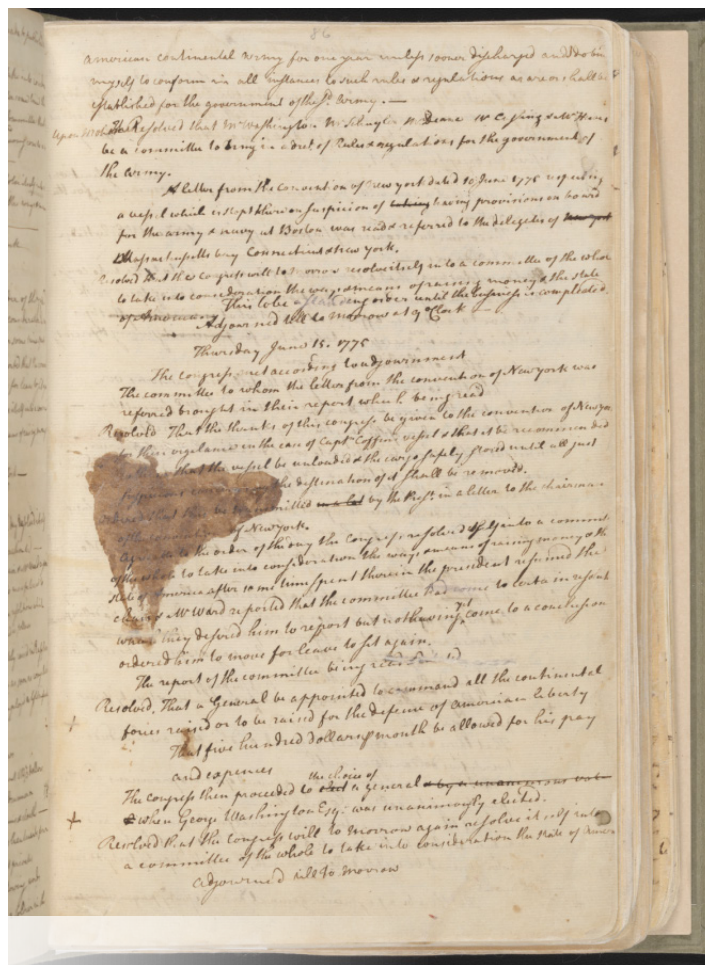 86
American continental army for one year unless sooner discharged and do bin
myself to conform in all instances to such rules & regulations as are or shall be
established for the government of the sd. Army. —
Upon Resolved that Mr Washington Mr Schuyler Mr Deane Mr Cushing & Mr Hewes
be a committee to bring in a dret of Rules & regulations for the government of
the army.
A letter from the convention of New york dated 10 June 1775 respecting
a vessel which is stopt there on suspicion of taking having provisions on board
for the army & navy at Boston was read & referred to the delegates of New york
Massachusetts bay Connecticut & New york.
Resolved that the Congress will to morrow resolve itself into a committee of the whole
to take into consideration the ways & means of raising money & the state
of America. This to be a standing order until the business is compleated.
Adjourned till to morrow at 9 oClock —
Thursday June 15. 1775
The Congress met according to adjournment
The committee to whom the letter from the convention of New york was
referred brought in their report which being read
Resolved That the thanks of this congress be given to the convention of New yor
for their vigilance in the case of Captn Coffin's vessel & that it be recommended
that the vessel be unloaded & the cargo safely stored until all just
suspicions concerning the destination of it shall be removed.
Ordered that this be transmitted in a let by the Prest. in a letter to the chairman
of the convention of New york.
Agreeable to the order of the day the Congress resolved itself into a committ
of the whole to take into consideration the ways & means of raising money & the
state of America after some time spent therein the president resumed the
chair & Mr Ward reported that the committee had come to certain resolut
which they desired him to report but not having yet come to a conclusion
ordered him to move for leave to sit again.
The report of the committee being read
Resolved, That a General be appointed to command all the continental
forces raised or to be raised for the defence of American liberty
That five hundred dollars pr month be allowed for his pay
and expences
The Congress then proceeded to elect the choice of a general & by a unanimous vote
& when George Washington Esqr. was unanimously elected.
Resolved that the Congress will to morrow again resolve itself into
a committee of the whole to take into consideration the state of America
adjourned till to morrow